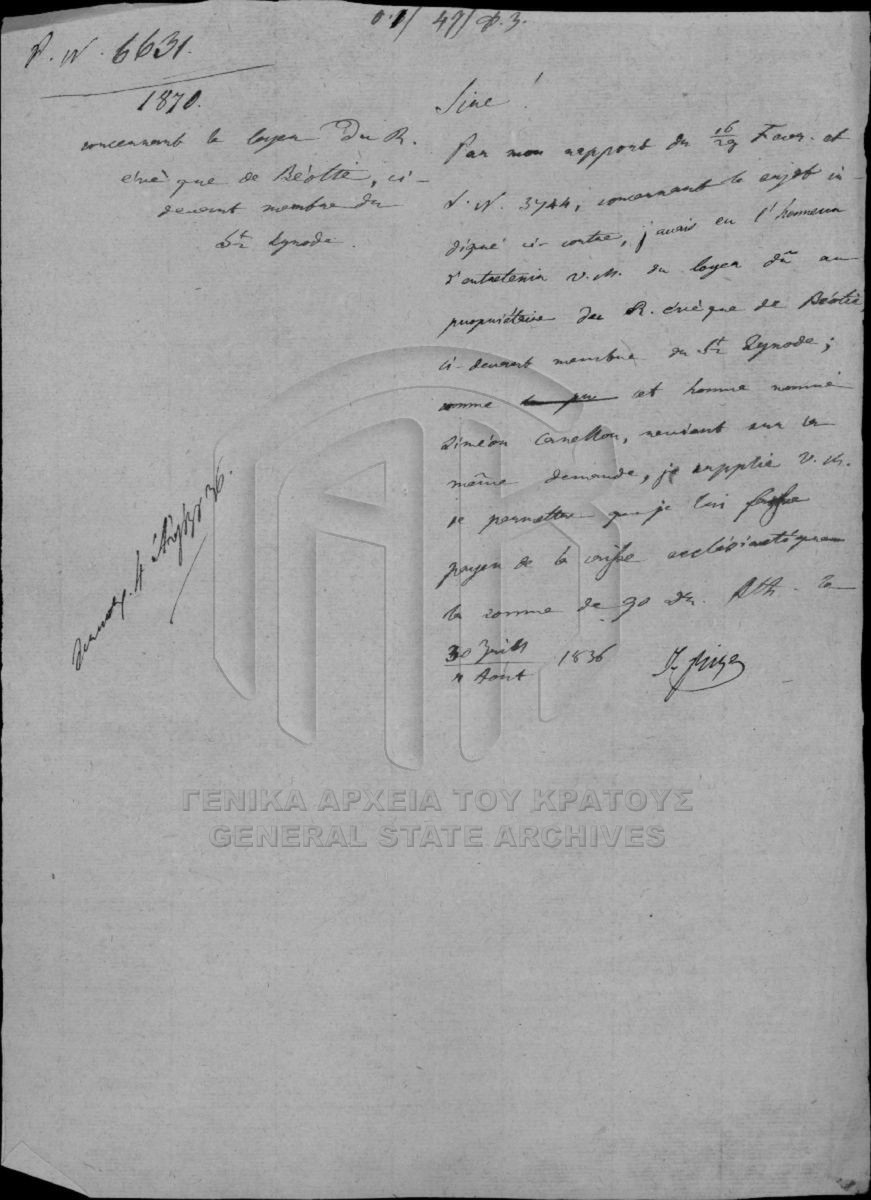 P. N. 6631.
1870.
concernant le loyer du R.
évèque de Béotie, ci-
devant membre du
St Synode.
Sire!
Par mon rapport du 16/29 Fevr. et
P. N. 3744, concernant le sujet in-
diqué ci-contre, j'avais eu l'honneur
d'entretenir V. M. du loyer dû au
propriétaire du R. évèque de Béotie,
ci-devant membre du St Synode;
comme cet homme nommé
Siméon, venant sur la
même demande, je supplie V. M.
de permettre que je lui fasse
payer de la caisse ecclésiastique
la somme de 90 dr. Ath. le
30 Juill
Août 1836
36.
ΓΕΝΙΚΑ ΑΡΧΕΙΑ ΤΟΥ ΚΡΑΤΟΥΣ
GENERAL STATE ARCHIVES